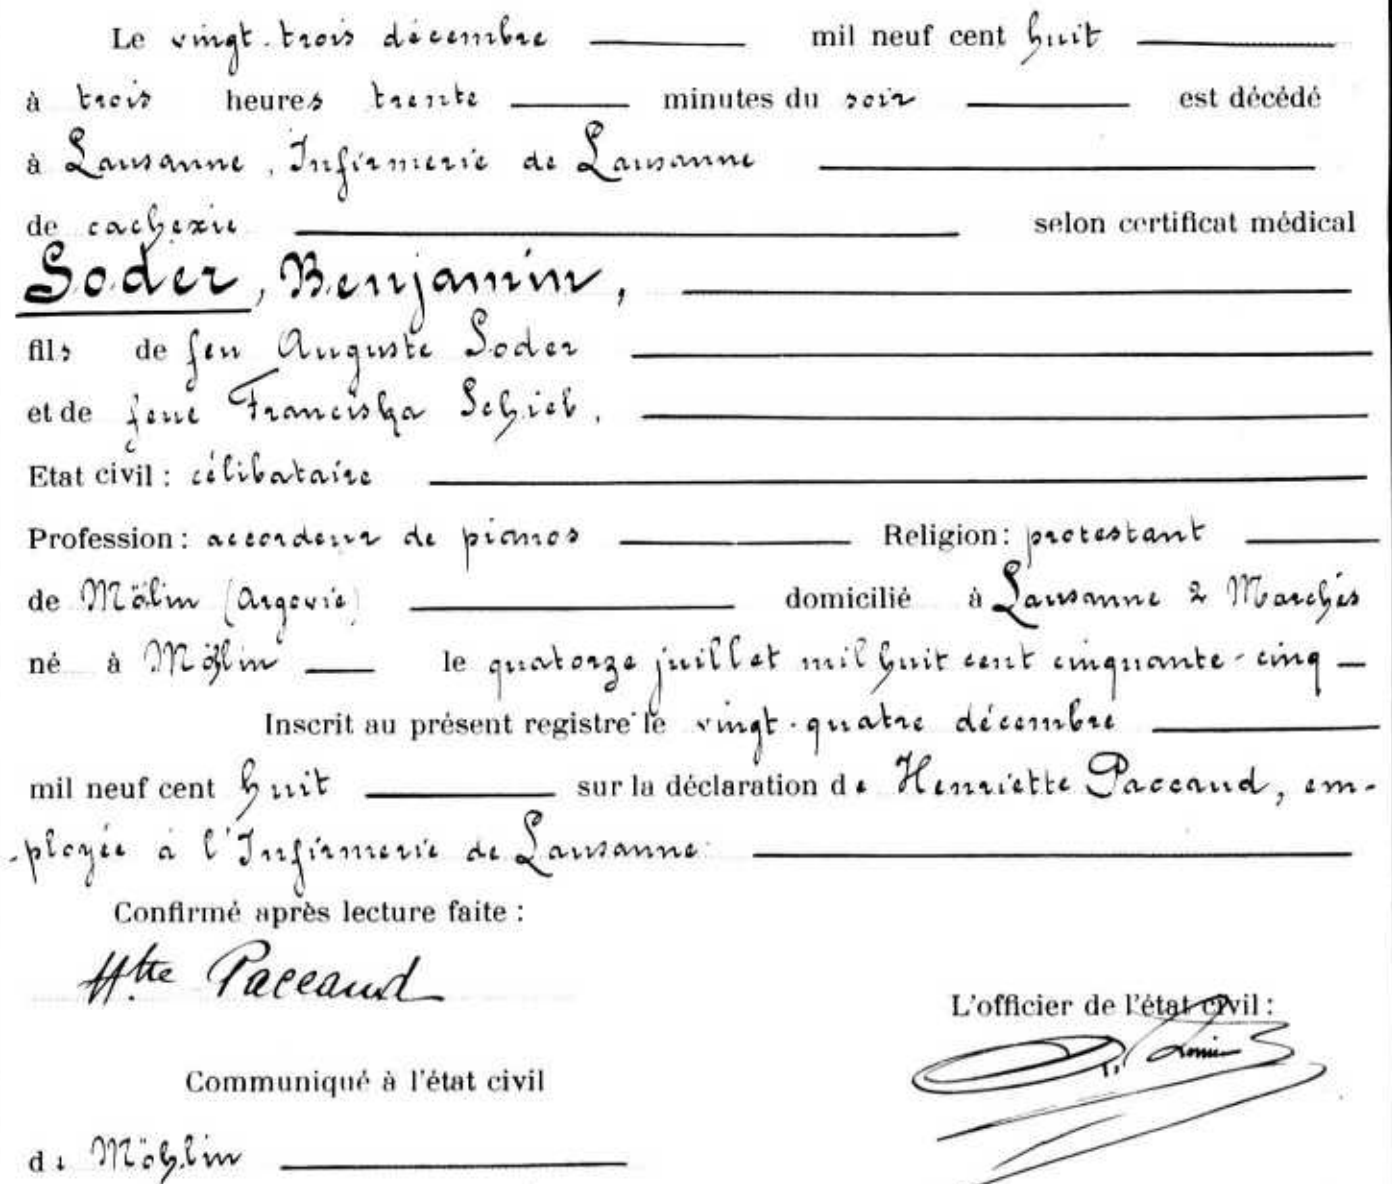 Le vingt-trois décembre mil neuf cent huit
à trois heures trente minutes du soir est décédé
à Lausanne, Infirmerie de Lausanne
de cachexie selon certificat médical
Soder, Benjamin,
fils de feu Auguste Soder
et de feue Franciska Schieb,
Etat civil : célibataire
Profession : accordeur de pianos Religion : protestant
de Mölin (Argovie) domicilié à Lausanne 2 Marchés
né à Möhlin le quatorze juillet mil huit cent cinquante-cinq
Inscrit au présent registre le vingt-quatre décembre
mil neuf cent huit sur la déclaration de Henriette Paccaud, em-
-ployée à l'Infirmerie de Lausanne
Confirmé après lecture faite :
Hte Paccaud
L'officier de l'état civil :
Communiqué à l'état civil
de Möhlin